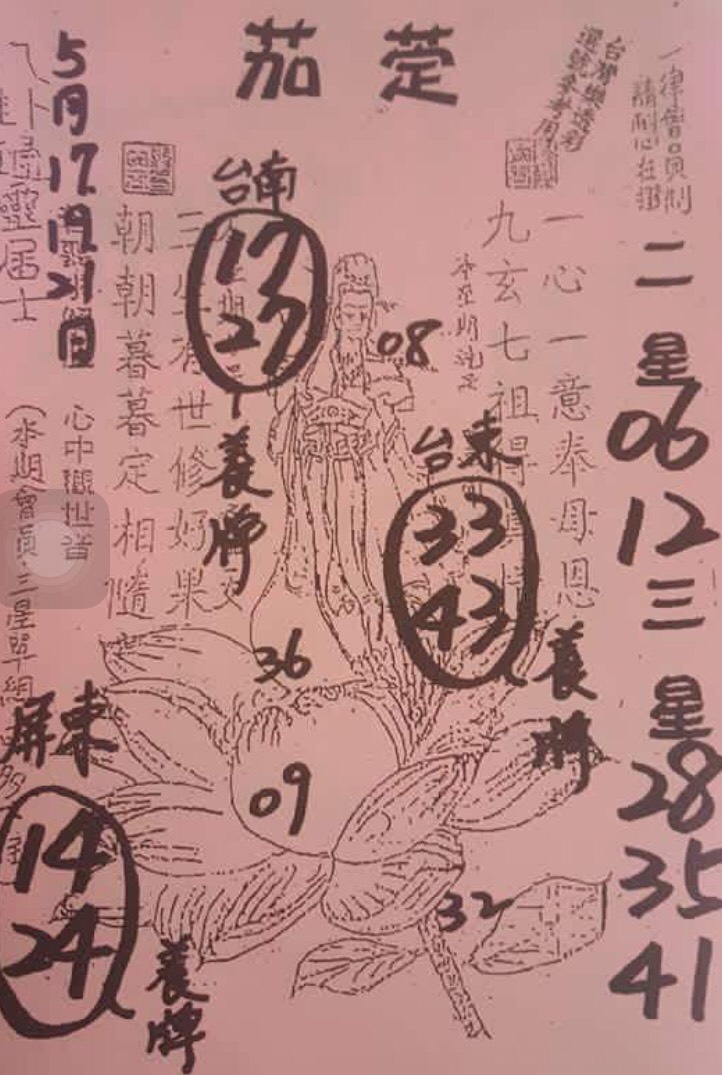 茄萣
台灣樂透彩
選號參考用
一律會員制
二星
06
12
三星
28
35
41
一心一意奉母恩
九玄七祖得
台東
33
43
養牌
08
台南
17
27
養牌
世修好果
朝朝暮暮定相隨
5月17.19.21日
心中觀世音
居士
(本期會員三星單組
屏東
14
24
養牌
36
09
32